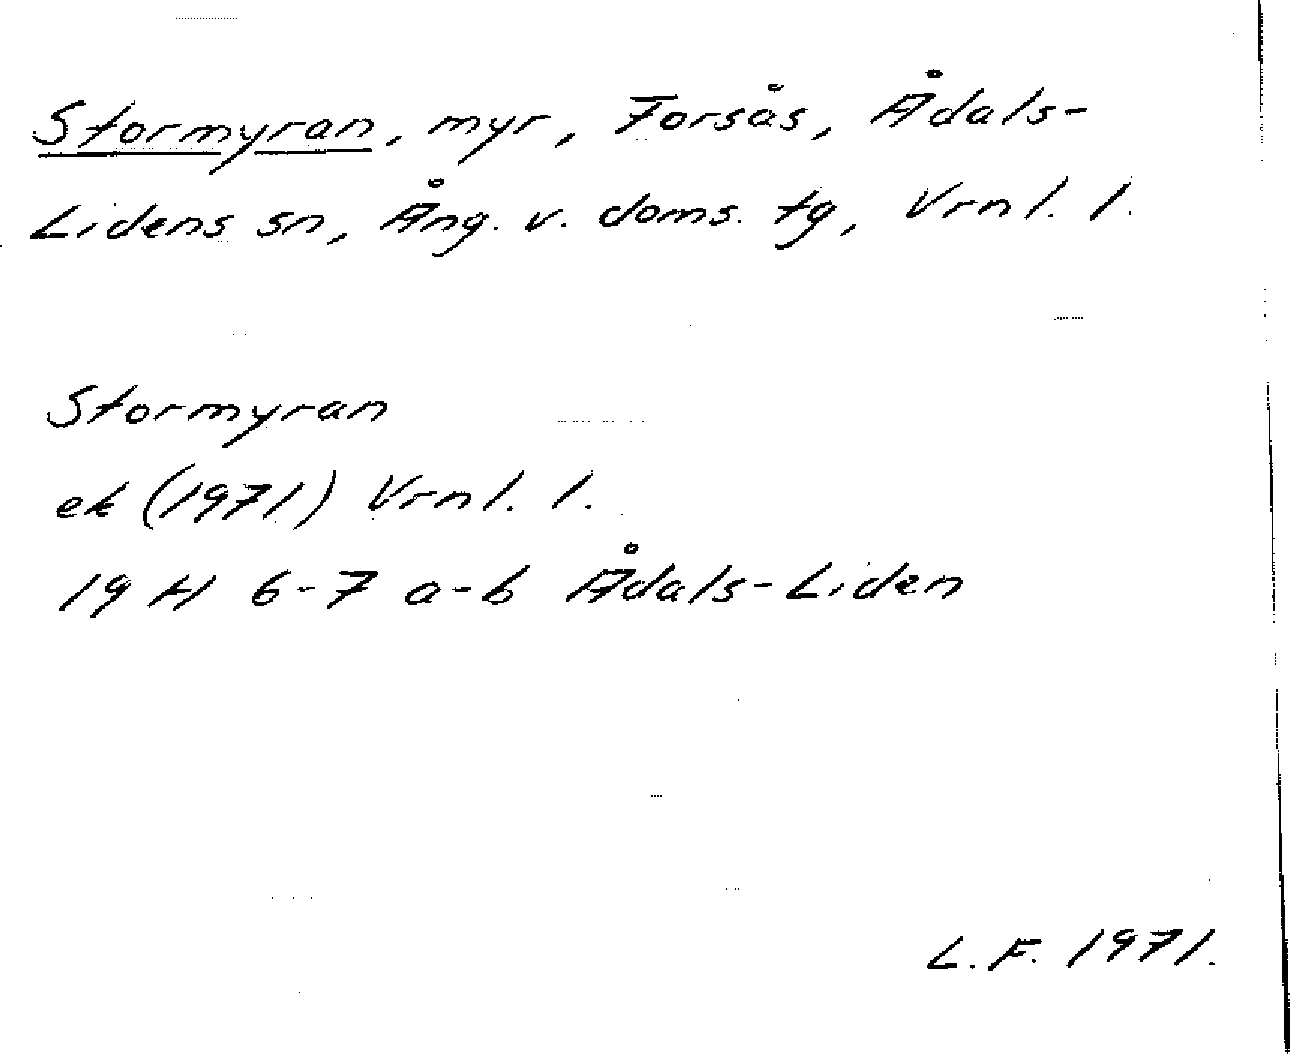 Stormyran, myr, Forsås, Ådals-
Lidens sn, Ång. v. doms. tg, Vrnl. l.
Stormyran
ek (1971) Vrnl. l.
19 H 6-7 a-b Ådals-Liden
L.F. 1971.